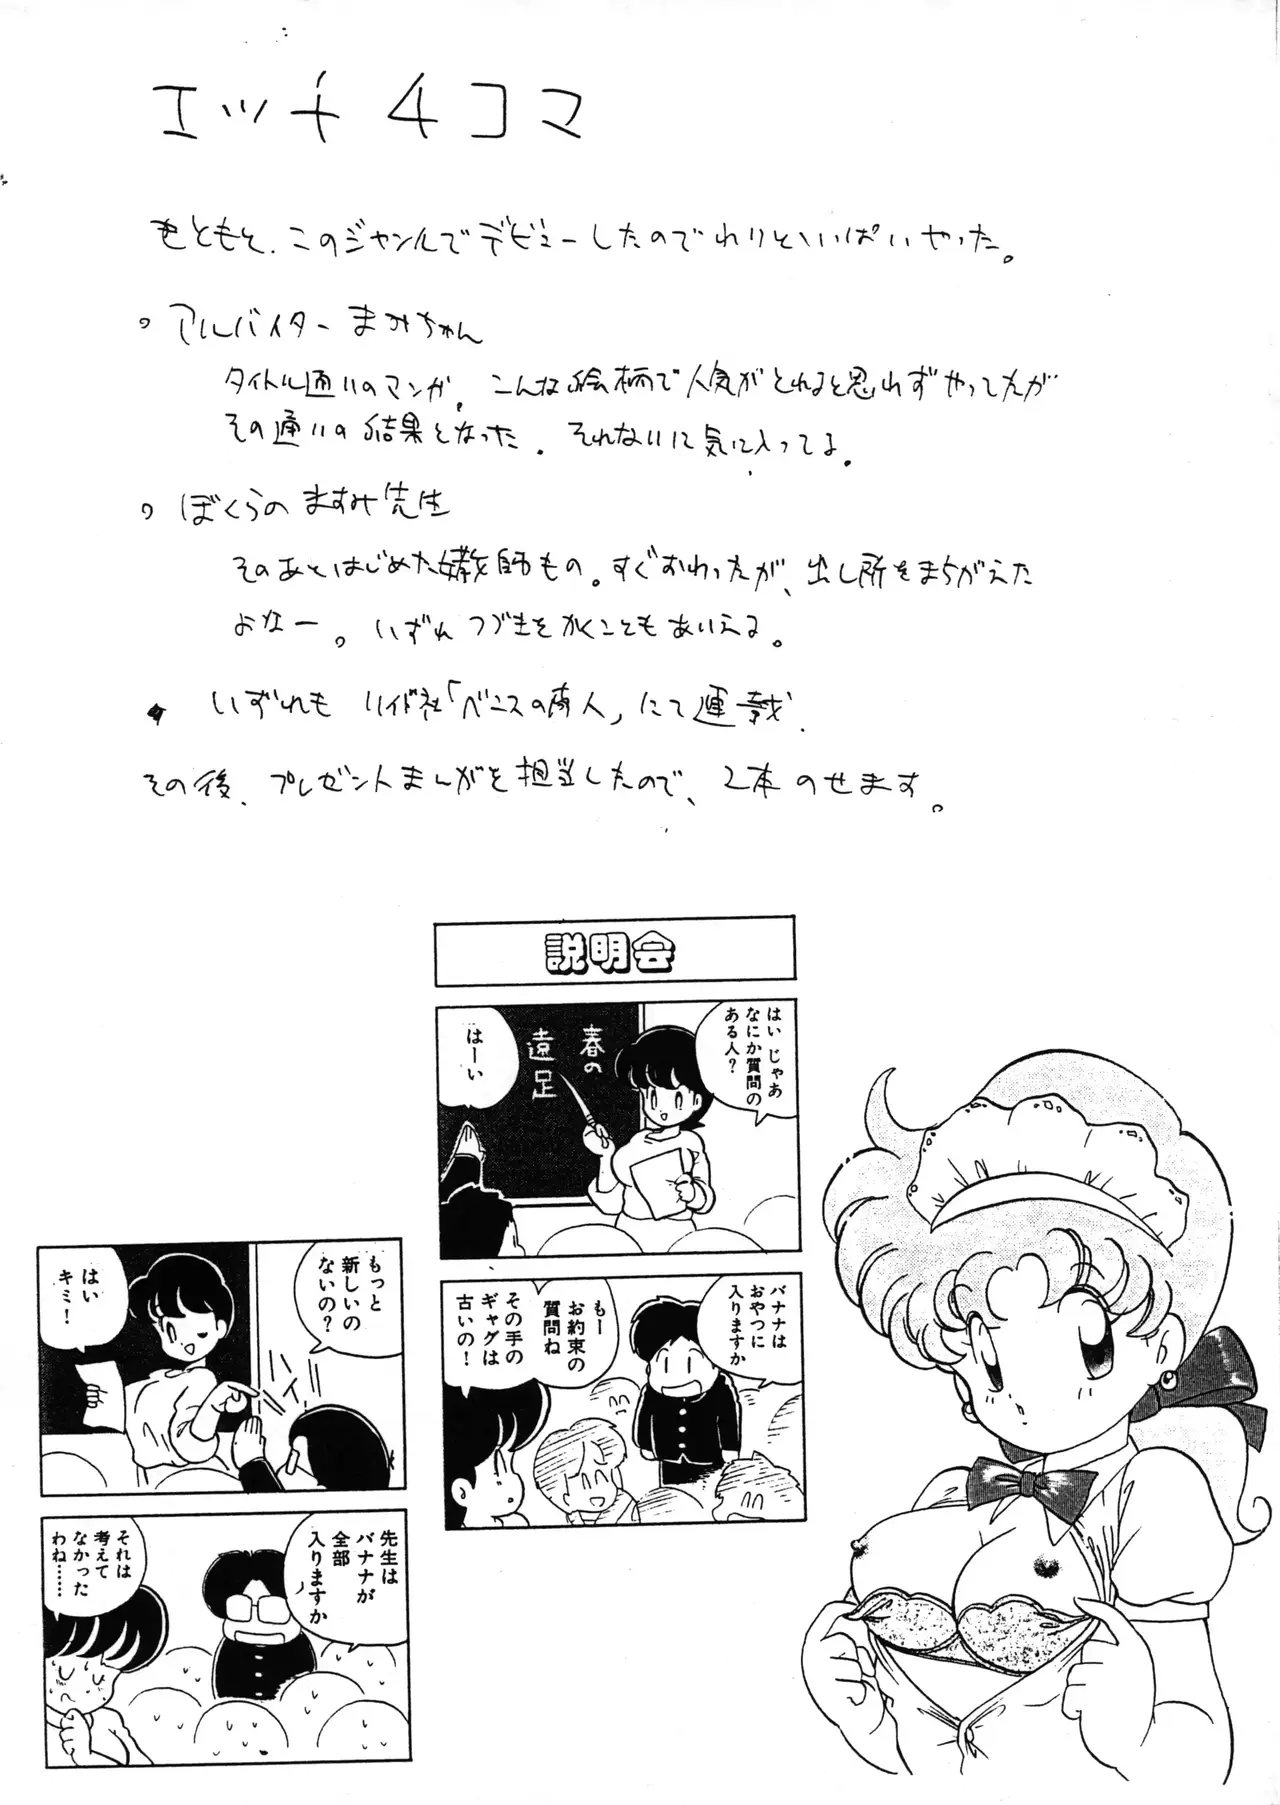 エッチ4コマ
もともと、このジャンルでデビューしたのでわりといっぱいやった。
。アルバイターまみちゃん
タイトル通りのマンガ。こんな絵柄で人気がとれると思わずやってたが
その通りの結果となった。それなりに気に入ってる。
。ぼくらのますみ先生
そのあとはじめた教師もの。すぐおわったが、出し所をまちがえた
よなー。いずれつづきをかくこともありえる。
いずれもリイド社「ベニスの商人」にて連載.
その後、プレゼントまんがを担当したので、2本のせます。
説明会
はい じゃあ
なにか質問の
ある人?
春の
遠足
はーい
バナナは
おやつに
入りますか
もー
お約束の
質問ね
その手の
ギャグは
古いの!
もっと
新しいの
ないの?
ハイ
はい
キミ!
先生は
バナナが
全部
入りますか
それは
考えて
なかった
わね……